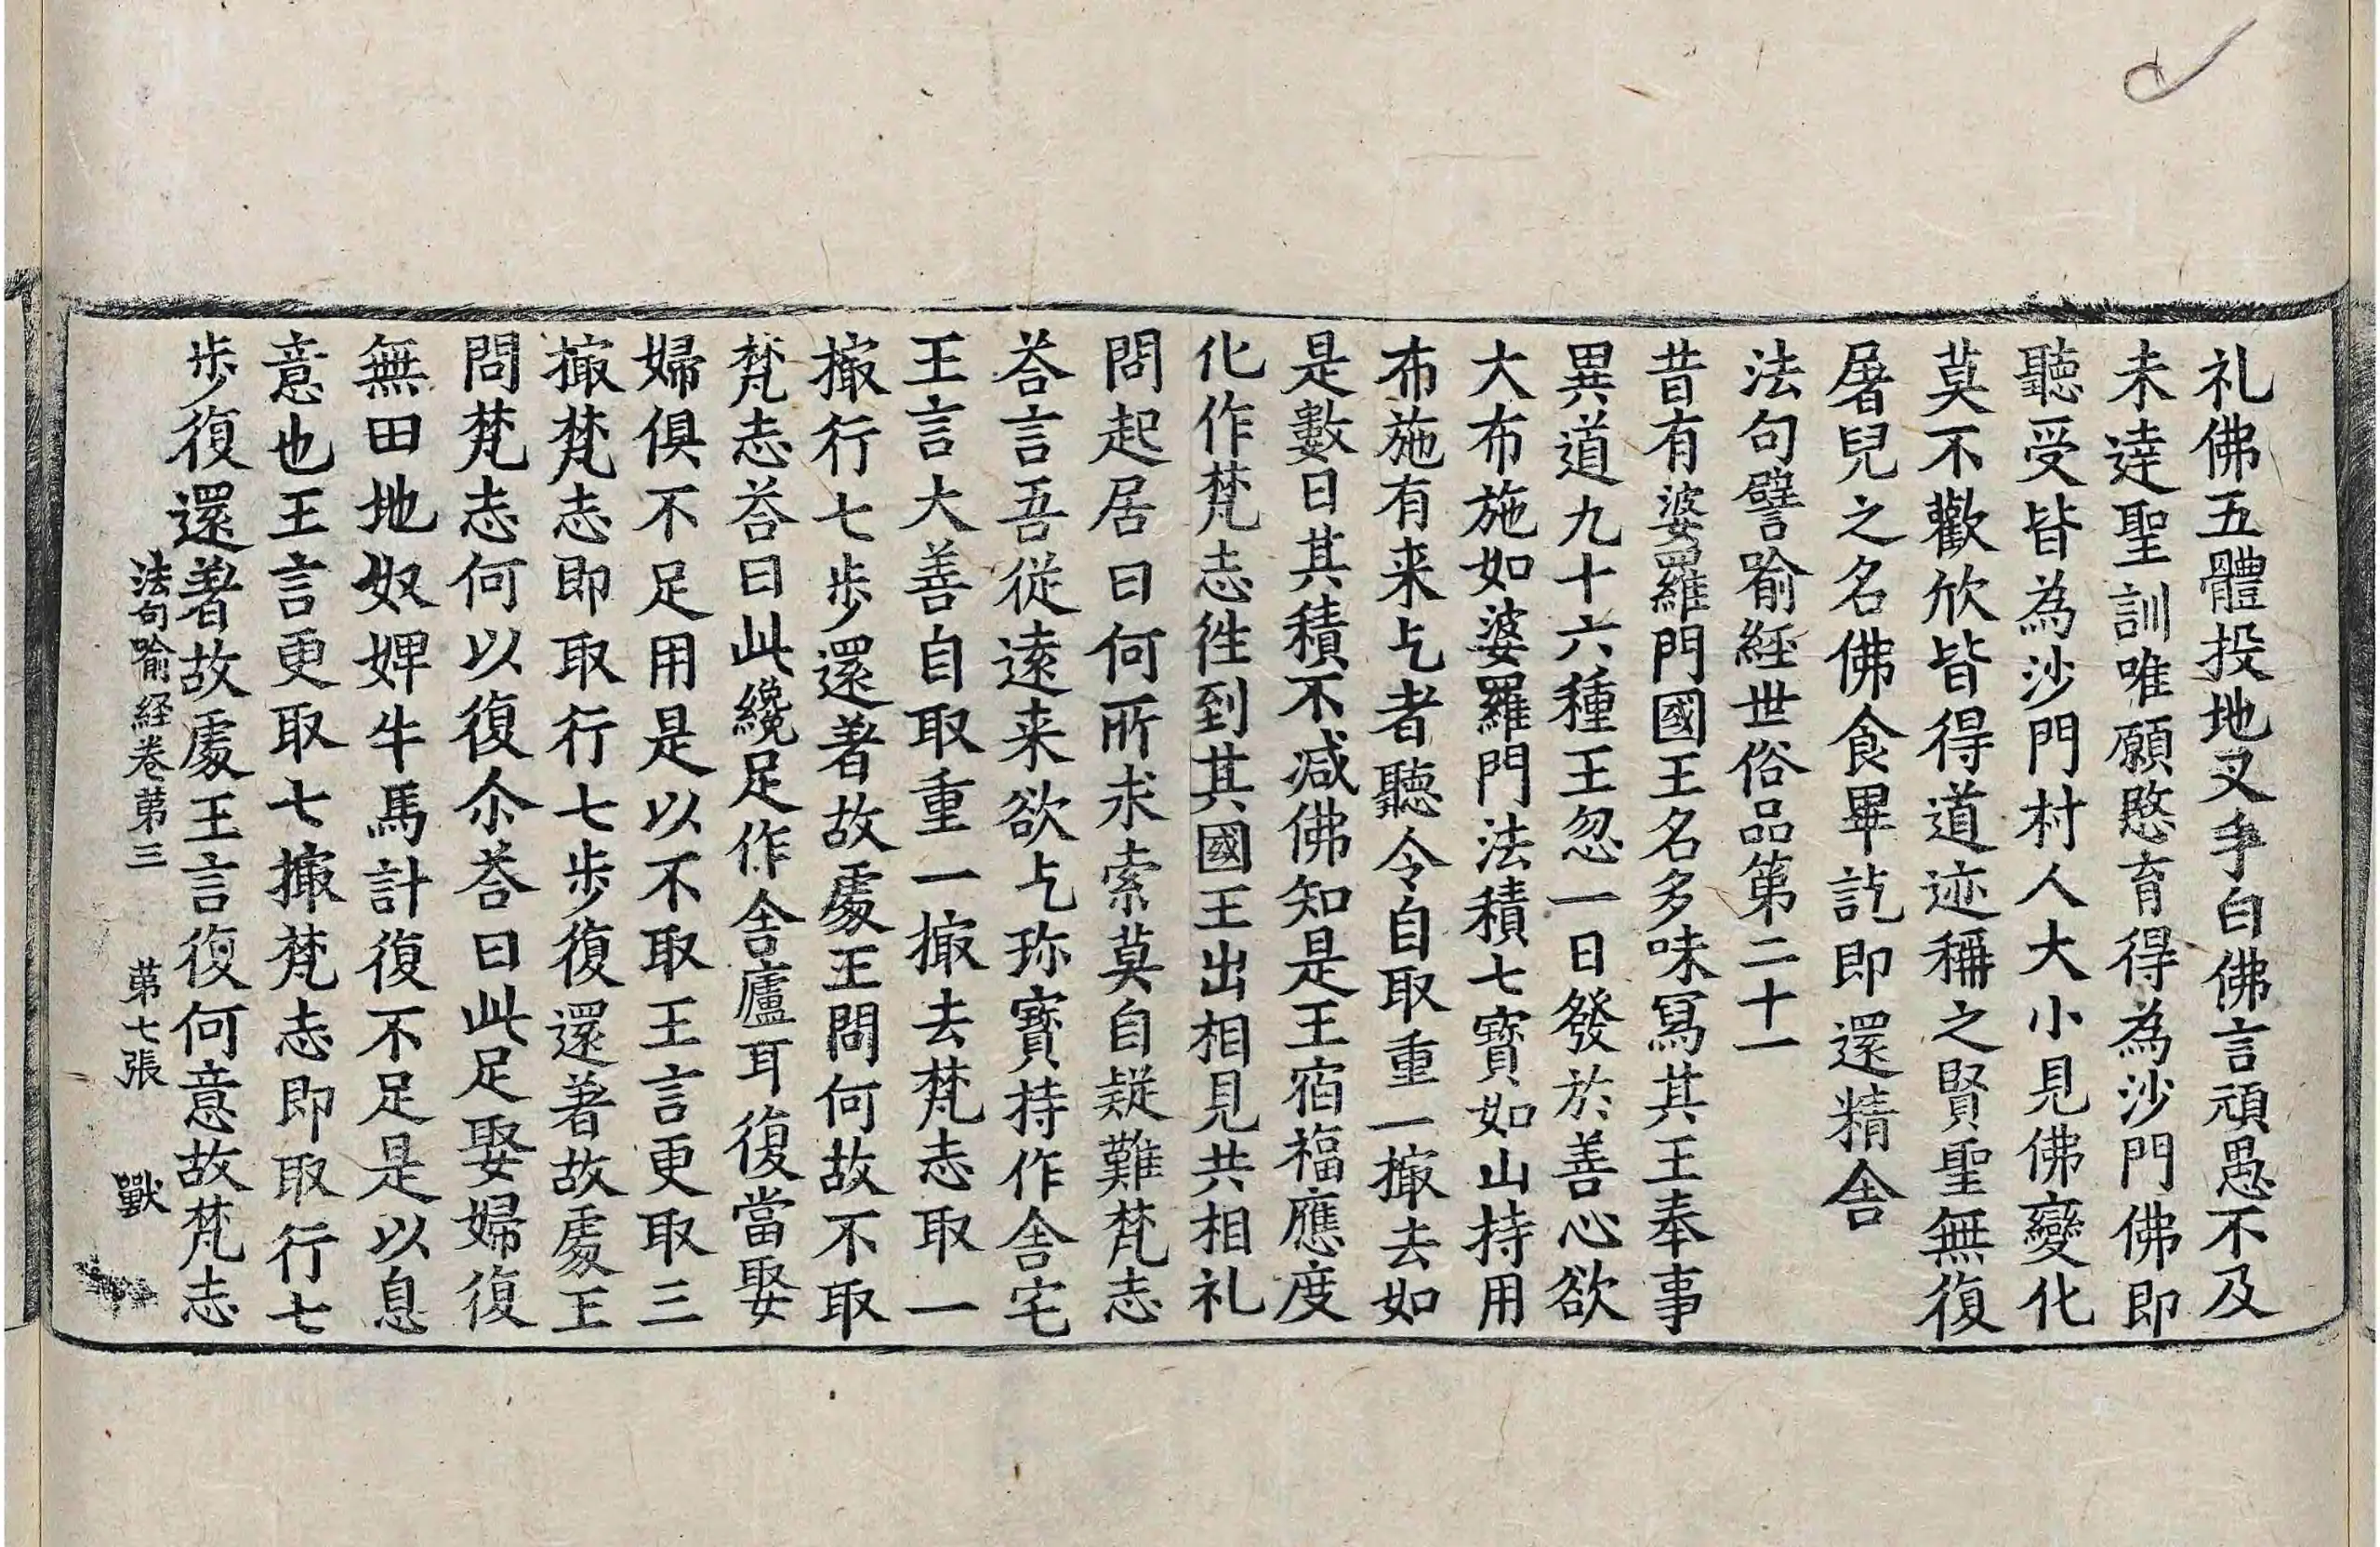 礼佛五體投地叉手白佛言頑愚不及
未達聖訓唯願愍育得為沙門佛即
聽受皆為沙門村人大小見佛變化
莫不歡欣皆得道迹稱之賢聖無復
屠兒之名佛食畢訖即還精舍
法句譬喻經世俗品第二十一
昔有婆羅門國王名多味寫其王奉事
異道九十六種王忽一日發於善心欲
大布施如婆羅門法積七寶如山持用
布施有来乞者聽令自取重一撮去如
是數日其積不减佛知是王宿福應度
化作梵志徃到其國王出相見共相礼
問起居曰何所求索莫自疑難梵志
荅言吾從逺来欲乞珎寳持作舍宅
王言大善自取重一撮去梵志取一
撮行七步還著故處王問何故不取
梵志荅曰此纔足作舍廬耳復當娶
婦俱不足用是以不取王言更取三
撮梵志即取行七步復還著故處王
問梵志何以復尒荅曰此足娶婦復
無田地奴婢牛馬計復不足是以息
意也王言更取七撮梵志即取行七
步復還著故處王言復何意故梵志
法句喻経卷苐三 苐七張